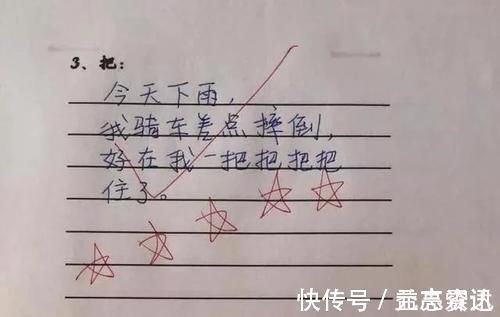 3、把：
今天下雨，
我骑车差点摔倒，
好在我一把把把把
住了。
快传号／